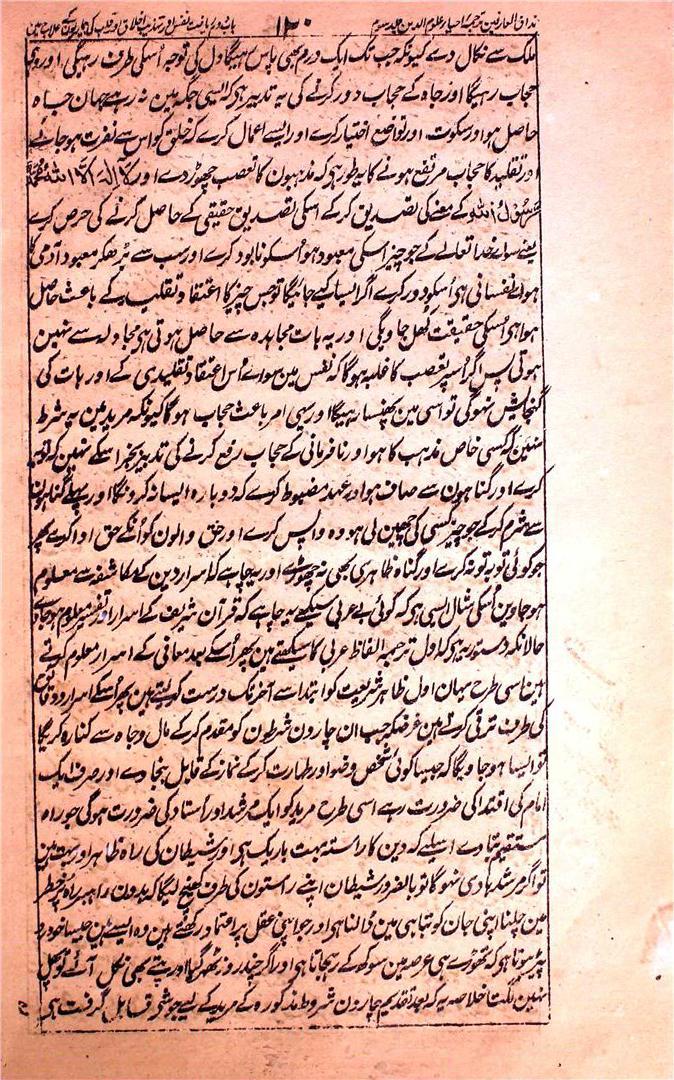 مذاق العارفین ترجمہ احیاء علوم الدین جلد سوم ۱۲۰ باب دوم ریاضت نفس اور تہذیب اخلاق اور قلب کی بیماریوں کے علاج میں
ملک سے نکال دے کیونکہ جب تک ایک درم بھی پاس رہیگا دل کی توجہ اُسکی طرف رہیگی اور وہی
حجاب رہیگا اور جاہ کے حجاب دور کرنے کی یہ تدبیر ہی کہ ایسی جگہ مین نہ رہے جہان جاہ
حاصل ہو اور سکوت اور تواضع اختیار کرے اور ایسے اعمال کرے کہ خلق کو اس سے نفرت ہو جائے
اور تقلید کا حجاب مرتفع ہونے کا یہ طور ہی کہ مذہبون کا تعصب چھوڑ دے اور لا الہ الا اللہ محمد
رسول اللہ کے معنے کی تصدیق کرکے اسکی تصدیق حقیقی کے حاصل کرنے کی حرص کرے
یعنے سواے خدا تعالے کے جو چیز اسکی معبود ہو اُسکو نابود کرے اور سب سے بڑھکر معبود آدمی کا
ہواے نفسانی ہی اُسکو دور کرے اگر ایسا کیے جائیگا تو جس چیز کا اعتقاد تقلید کے باعث حاصل
ہوا ہی اُسکی حقیقت کھل جاویگی اور یہ بات مجاہدہ سے حاصل ہوتی ہی مجادلہ سے نہین
ہوتی پس اگر اُسپر تعصب کا غلبہ ہوگا کہ نفس مین سواے اُس اعتقاد تقلیدی کے اور بات کی
گنجایش نہوگی تو اسی مین پھنسا رہیگا اور یہی امر باعث حجاب ہوگا کیونکہ مرید مین یہ شرط
نہین کہ کسی خاص مذہب کا ہو اور نافرمانی کے حجاب رفع کرنے کی تدبیر بجز اسکے نہین کہ توبہ
کرے اور گناہون سے صاف ہو اور عہد مضبوط کرے کہ دوبارہ ایسا نہ کرونگا اور پہلے گناہون
سے شرم کرکے جو چیز کسی کی چھین لی ہو وہ واپس کرے اور حق والون کو اُنکے حق ادا کرے پھر
جو کوئی توبہ تو نہ کرے اور گناہ ظاہری بھی نہ چھوڑے اور یہ چاہے کہ اسرار دین کے مکاشفہ سے معلوم
ہو جاوین اُسکی مثال ایسی ہی کہ کوئی بے عربی سیکھے یہ چاہے کہ قرآن شریف کے اسرار اور تفسیر معلوم ہو جاوے
حالانکہ دستور یہ ہی کہ اول ترجمہ الفاظ عربی کا سیکھتے ہین پھر اُسکے بعد معانی کے اسرار معلوم کرتے
ہین اسی طرح یہان اول ظاہر شریعت کو ابتدا سے آخر تک درست کر لیتے ہین پھر اُسکے اسرار و دقائق
کی طرف ترقی کرتے ہین غرضکہ جب ان چارون شرطون کو مقدم کرکے مال و جاہ سے کنارہ کریگا
تو ایسا ہو جاویگا کہ جیسا کوئی شخص وضو اور طہارت کرکے نماز کے قابل بنجاوے اور صرف ایک
امام کی اقتدا کی ضرورت رہے اسی طرح مرید کو ایک مرشد اور اُستاد کی ضرورت ہوگی جو راہ
مستقیم بتا دے اسلیے کہ دین کا راستہ بہت باریک ہی اور شیطان کی راہ ظاہر اور بہت ہین
تو اگر مرشد ہادی نہوگا تو بالضرور شیطان اپنے رستون کی طرف کھینچ لیگا کہ بدون راہبر راہ پُر خطر
مین چلنا اپنی جان کو تباہی مین ڈالنا ہی اور جو اپنی عقل پر اعتماد رکھتے ہین وہ ایسے ہین جیسا خودرو
پیڑ ہوتا ہو کہ تھوڑے ہی عرصہ مین سوکھ کے رہجاتا ہی اور اگر چند روز ٹھہر گیا اور پتے بھی نکل آئے تو پھل
نہین لگتا خلاصہ یہ کہ بعد تقدیم چارون شروط مذکورہ کے مرید کے لیے جو شے قابل گرفت ہی